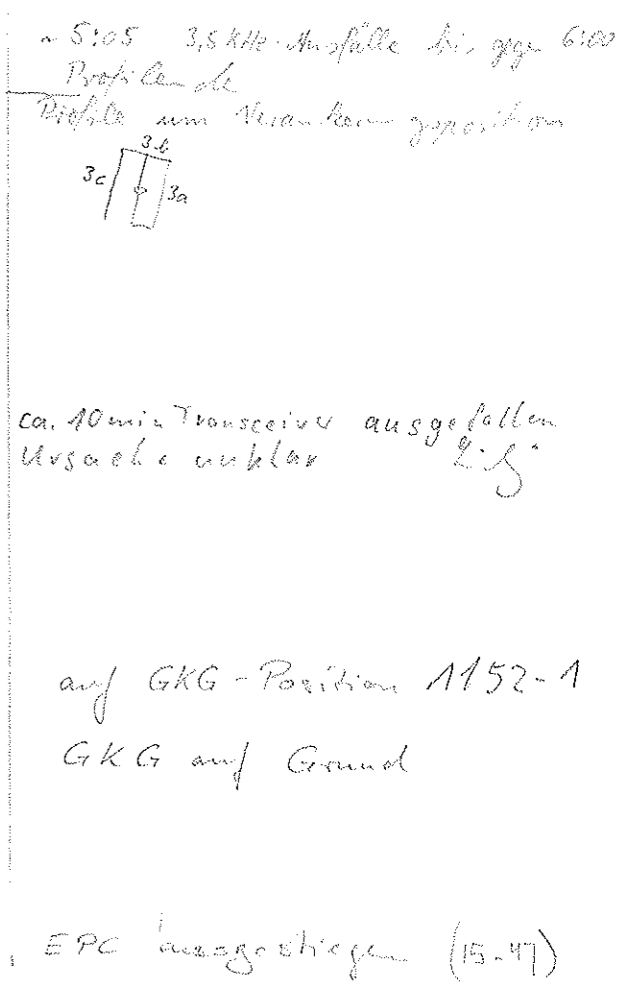 ~ 5:05 3,5 KHz-Ausfälle bis gegen 6:00
Profilende
Profile um Verankerungsposition
3b
3c
3a
ca. 10 min Transceiver ausgefallen
Ursache unklar
auf GKG-Position 1152-1
GKG auf Grund
EPC ausgestiegen (15-47)